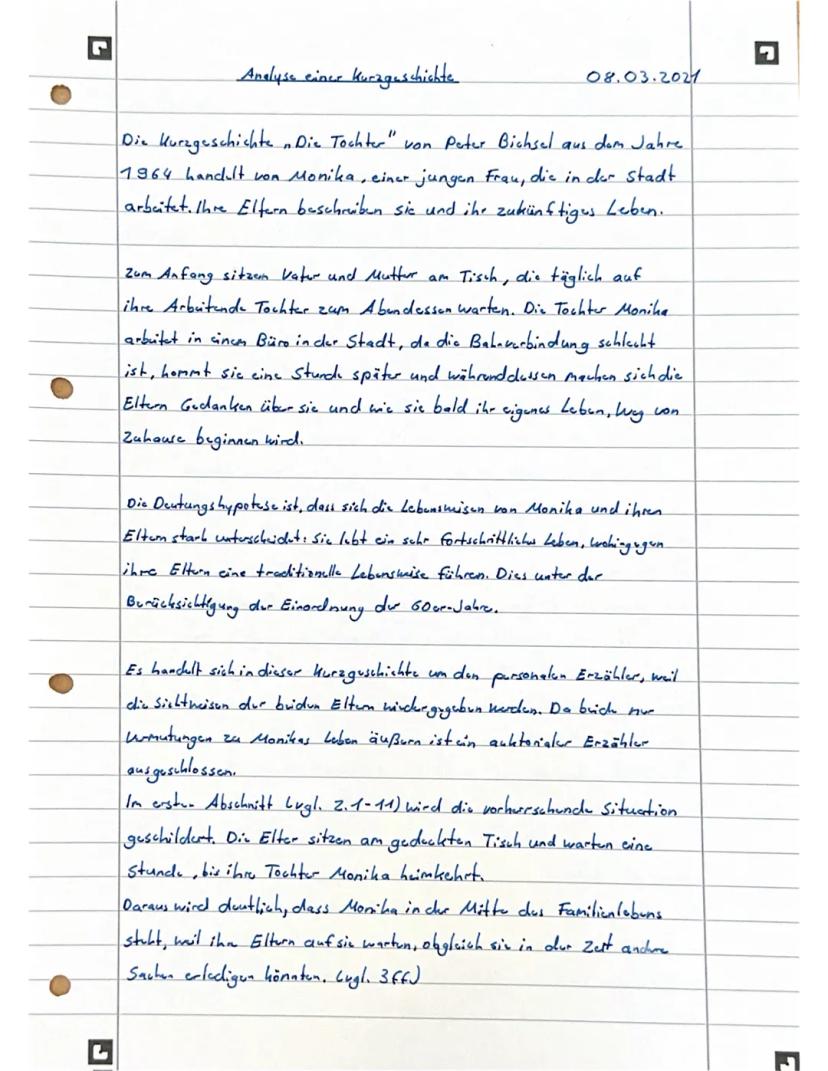 Analyse einer Kurzgeschichte 08.03.2021
Die Kurzgeschichte „Die Tochter" von Peter Bichsel aus dem Jahre
1964 handelt von Monika, einer jungen Frau, die in der Stadt
arbeitet. Ihre Eltern beschreiben sie und ihr zukünftiges Leben.
Zum Anfang sitzen Vater und Mutter am Tisch, die täglich auf
ihre Arbeitende Tochter zum Abendessen warten. Die Tochter Monika
arbeitet in einem Büro in der Stadt, da die Bahnverbindung schlecht
ist, kommt sie eine Stunde später und währenddessen machen sich die
Eltern Gedanken über sie und wie sie bald ihr eigenes Leben, weg von
Zuhause beginnen wird.
Die Deutungshypotese ist, dass sich die Lebensweisen von Monika und ihren
Eltern stark unterscheidet: Sie lebt ein sehr fortschrittliches Leben, wohingegen
ihre Eltern eine traditionelle Lebensweise führen. Dies unter der
Berücksichtigung der Einordnung der 60er-Jahre.
Es handelt sich in dieser Kurzgeschichte um den personalen Erzähler, weil
die Sichtweisen der beiden Eltern wiedergegeben werden. Da beide nur
Vermutungen zu Monikas Leben äußern ist ein auktorialer Erzähler
ausgeschlossen.
Im ersten Abschnitt (vgl. Z.1-11) wird die vorherrschende Situation
geschildert. Die Elter sitzen am gedeckten Tisch und warten eine
Stunde, bis ihre Tochter Monika heimkehrt.
Daraus wird deutlich, dass Monika in der Mitte des Familienlebens
steht, weil ihre Eltern auf sie warten, obgleich sie in der Zeit andere
Sachen erledigen könnten. (vgl. 3ff.)